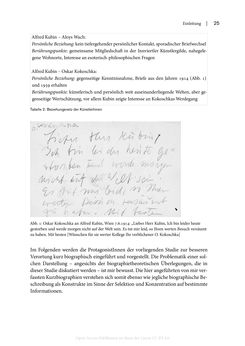 Einleitung | 25
Alfred Kubin – Aloys Wach:
Persönliche Beziehung: kein tiefergehender persönlicher Kontakt, sporadischer Briefwechsel
Berührungspunkte: gemeinsame Mitgliedschaft in der Innviertler Künstlergilde, nahegelegene Wohnorte, Interesse an esoterisch-philosophischen Fragen
Alfred Kubin – Oskar Kokoschka:
Persönliche Beziehung: gegenseitige Kenntnisnahme, Briefe aus den Jahren 1914 (Abb. 1)
und 1939 erhalten
Berührungspunkte: künstlerisch und persönlich weit auseinanderliegende Welten, aber gegenseitige Wertschätzung, vor allem Kubin zeigte Interesse an Kokoschkas Werdegang
Tabelle 2: Beziehungsnetz der KünstlerInnen
Lieber Herr Kubin,
Ich bin lei der heute ge
storben und werde nicht
mehr auf der Welt sein.
Es tut mir leid,
Abb. 1: Oskar Kokoschka an Alfred Kubin, Wien 7.8.1914 „Lieber Herr Kubin, Ich bin leider heute
gestorben und werde morgen nicht auf der Welt sein. Es tut mir leid, so Ihren werten Besuch versäumt
zu haben. Mit besten [Wünschen für sie werter Kollege Ihr verblichener O. Kokoschka]
Im Folgenden werden die ProtagonistInnen der vorliegenden Studie zur besseren
Verortung kurz biographisch eingeführt und vorgestellt. Die Problematik einer solchen
Darstellung – angesichts der biographietheoretischen Überlegungen, die in
dieser Studie diskutiert werden – ist mir durchaus bewusst. Die hier angeführten verfassten
Kurzbiographien verstehen sich deshalb wie jegliche biographische Beschreibung
als Konstrukte im Sinne der Selektion und Konzentration auf bestimmte
Informationen.